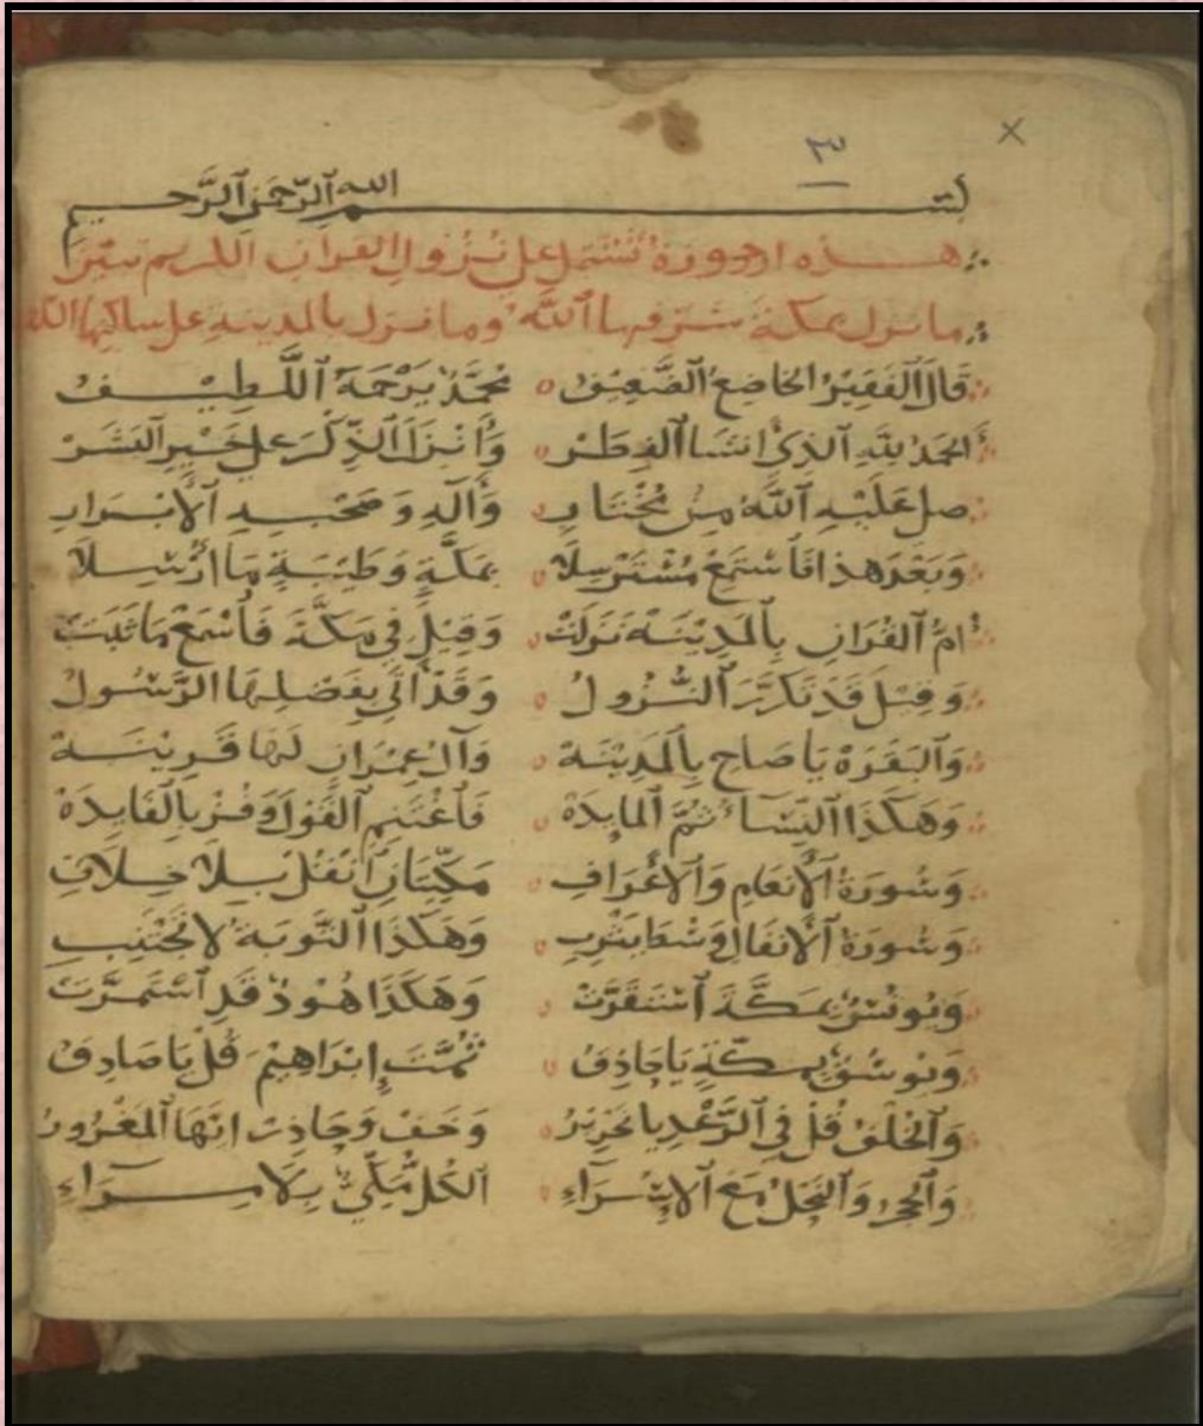 ٣
بسم الله الرَّحمَنِ الرَّحيم
هذه ارجوزة تَشتمل على نُزُولِ القرآن الكريم تبيّن
ما نزل بمكة شرّفها اللّه وما نزل بالمدينة على ساكنها
قَالَ الْفَقِيْرُ الخاضِعُ الضَّعِيْفُ مُحَمَّدٌ يَرْحَمَهُ اللَّطِيْفُ
اَلحَمدُ لِلَّهِ الَّذِي انشَا الفِطَرْ وَأَنْزَلَ الذِّكْرَ عَلى خَيْرِ البَشَرْ
صلى عَلَيْهِ اللَّهُ مِنْ مُخْتَارِ وَآلِهِ وَصَحْبِهِ الأَبْرَارِ
وَبَعْدَ هذا فَاسْتَمِعْ مُسْتَرْسِلَا بمَكَّةٍ وَطَيْبَةٍ مَا اُرْسِلَا
اُمُّ القُرَانِ بِالْمَدِيْنَة نَزَلَتْ وَقِيْلَ في مَكَّةَ فَاسْمَعْ مَا ثَبَتَتْ
وَقِيْلَ قَدْ تَكَرَّرَ النُّزُولُ وَقَدْ اَتَى بِفَضْلِهَا الرَّسُولُ
وَالبَقَرَهْ يَا صَاحِ بِالْمَدِيْنَة وَآلُ عِمْرَانٍ لَهَا قَرِيْنَة
وَهكَذَا النِّسَاءُ ثُمَّ المايِدَة فَاغْتَنِمِ القَوْلَ وَفُزْ بِالْفَايِدَة
وَسُورَةُ الْأَنعَامِ وَالْاَعْرَافِ مَكِّيَّتَانِ انْقُلْ بِلَا خِلَافِ
وَسُورَةُ الْأَنفَالِ وَسْطَ يَثْرِبِ وَهَكَذَا التَّوبَةُ لَا تَجْتَنِبِ
وَيُونُسٌ بِمَكَّةَ اسْتَقَرَّتْ وَهَكَذَا هُوْدٌ قَدِ اسْتَمَرَّتْ
وَيُوسُفٌ بِمكّةٍ يَا حَاذِقُ ثُمَّتَ إِبْرَاهِيْمَ قُلْ يَا صَادِقُ
وَالخُلْفُ قُلْ في الرَّعْدِ يا نحْرِيْرُ وَخَفْ وَحَاذِرْ اِنَّهَا الْمَغْرُورُ
وَالْحِجْرُ وَالنَّحْلُ مَعَ الْاِسْرَآءِ الكُلُّ مَكِّيٌّ بِلَا مِرَاءِ